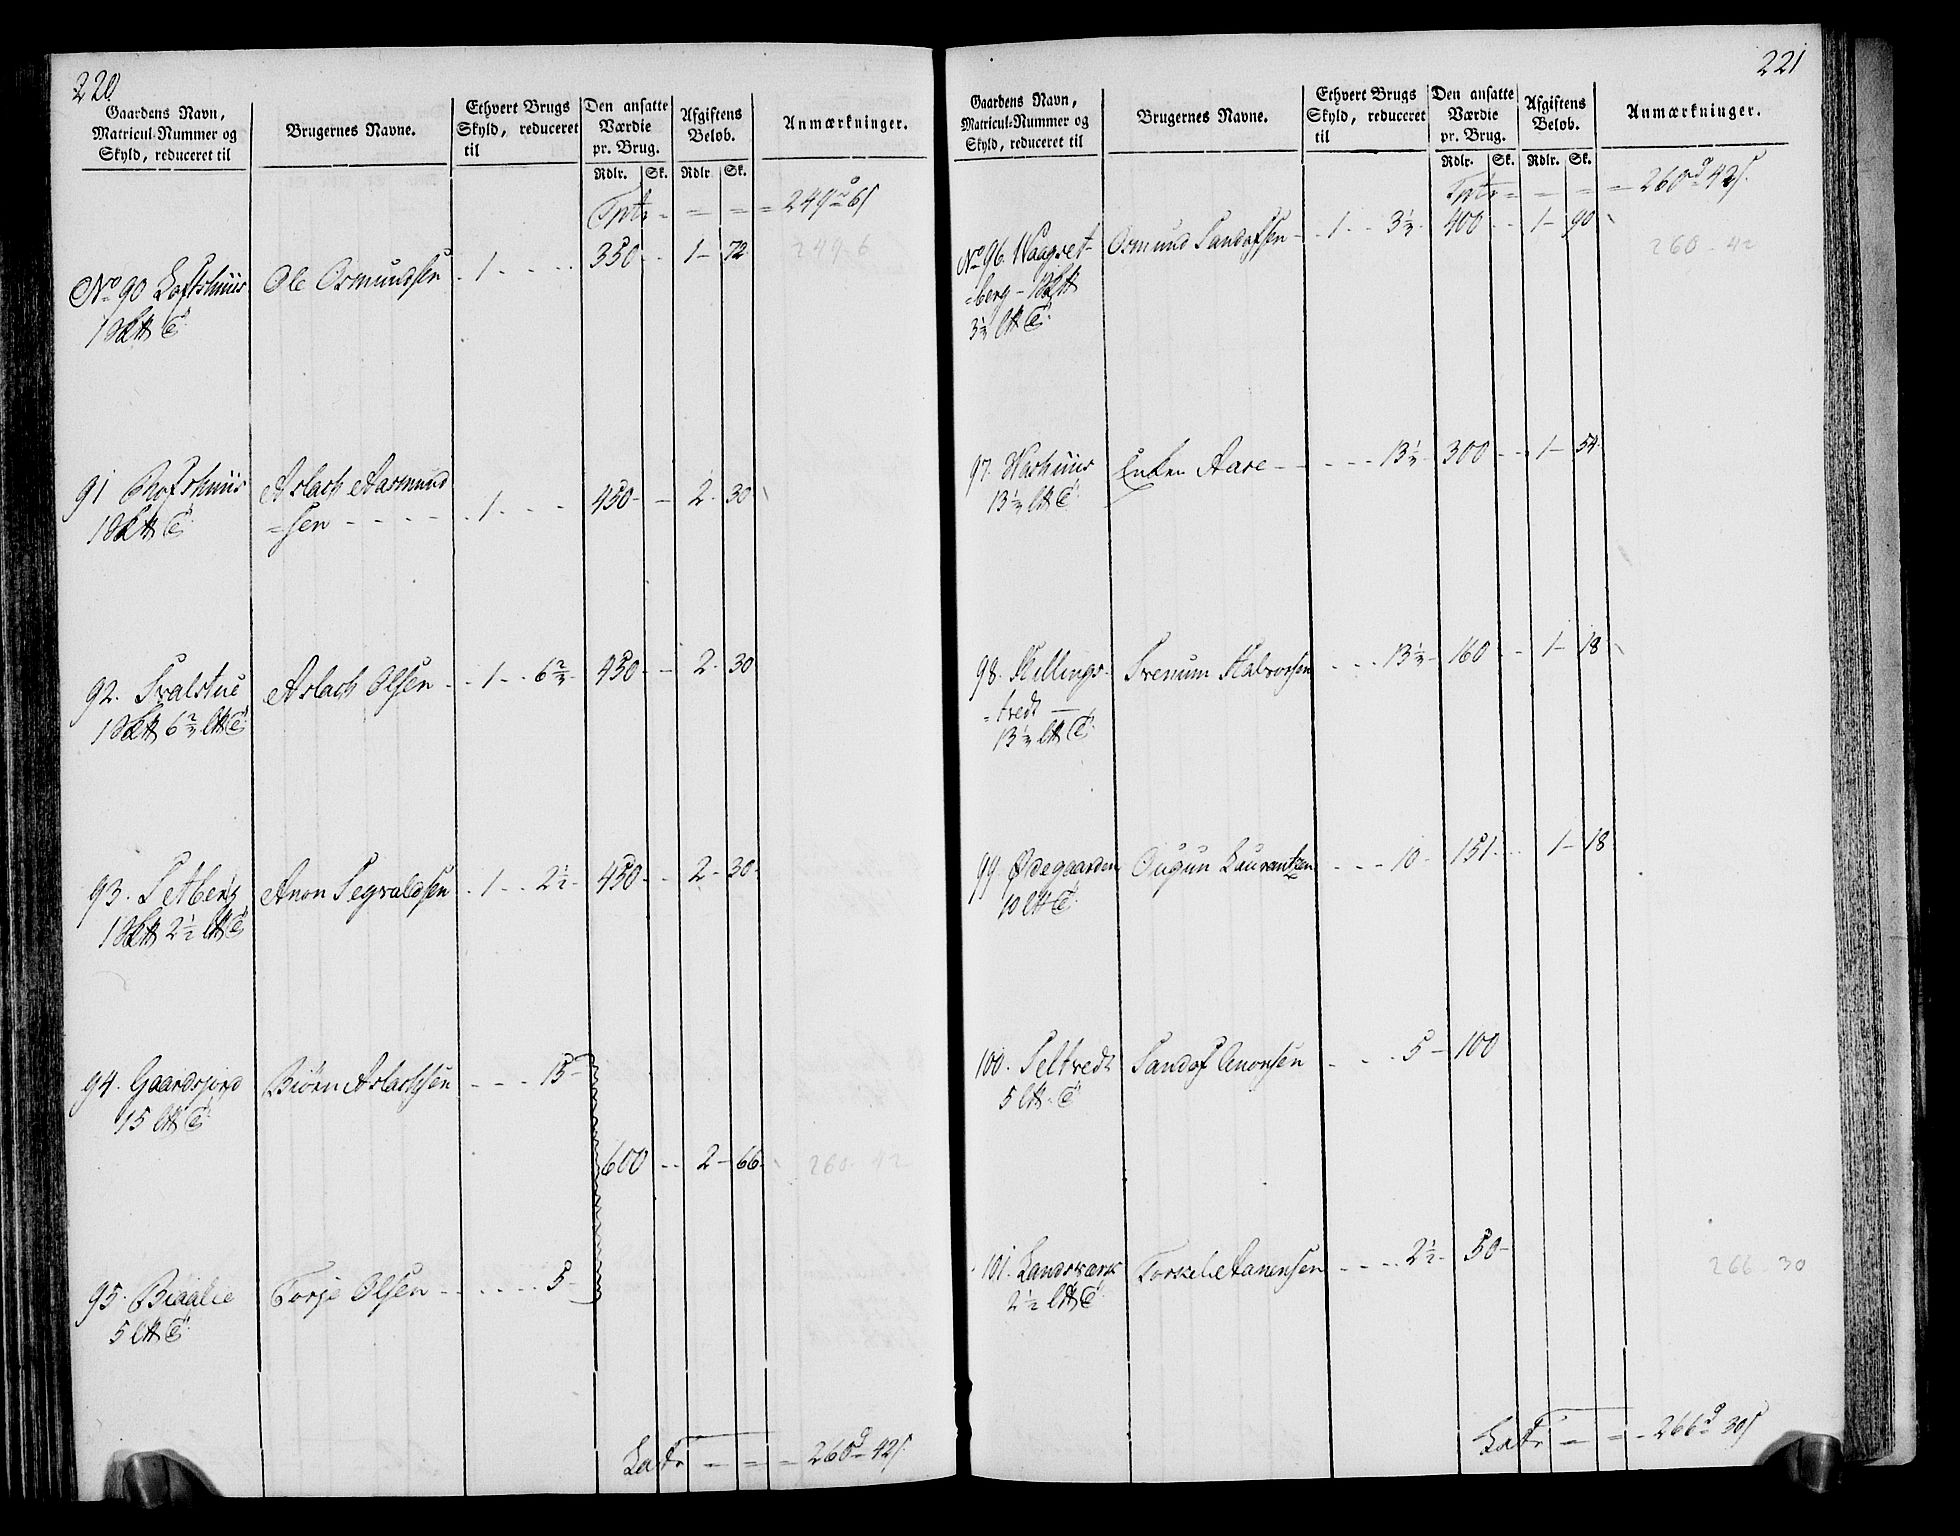 220
Gaardens Navn,
Matricul-Nummer og
Skyld, reduceret til
Brugernes Navne.
Ethvert Brugs
Skyld, reduceret
til
Den ansatte
Værdie
pr. Brug.
Rdlr. Sk.
Afgiftens
Belob.
Rdlr Sk.
Anmærkninger.
249 6
No 90 Loftshuus Ole Osmundsen 1 350 1 72
249-6
91 Aslach Aasmund
=sen 1 450 2 30
92. Svalstue Aslach Olsen 1 6 2/3 450 2 30
93. Setberg Anon Segvaldsen 1 2 1/2 450 2 30
94. Gaardsjord Biørn Aslachsen 15
15
600 2 66
260 42
95. Biaalie Torje Olsen 5
5
260 42
221
Gaardens Navn,
Matricul-Nummer og
Skyld, reduceret til
Brugernes Navne.
Ethvert Brugs
Skyld, reduceret
til
Den ansatte
Værdie
pr. Brug.
Rdlr. Sk.
Afgiftens
Belob.
Rdlr. Sk.
Anmærkninger.
260 42
No 96. Osmund Sandofsen 1 3 1/3 400 1 90
260-42
=berg
3 1/3
97. Enken Aase 13 1/3 300 1 54
13 1/3
98. Hellings- Halvorsen 13 1/3 160 1 18
=tvedt
13 1/3
99 Ødegaarden Ougun Laurantzen 10 151 1 18
10
100. Seltvedt Sandof Anonsen 5 100
5
101. Landsværk Torkel Aanensen 2 1/2 50
266 30
2 1/2
266 30